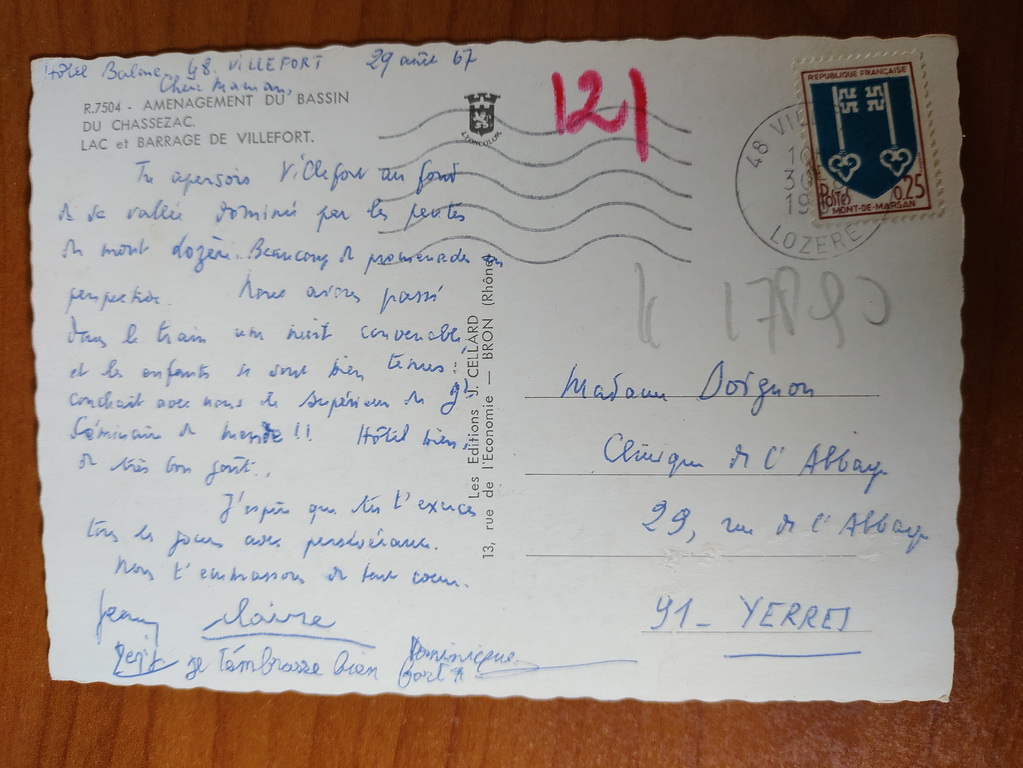 Hôtel Balme 48. VILLEFORT 29 août 67
Chère Maman,
R.7504 - AMENAGEMENT DU BASSIN
DU CHASSEZAC.
LAC et BARRAGE DE VILLEFORT.
Tu aperçois Villefort au fond
de sa vallée dominée par les pentes
du mont Lozère. Beaucoup de promenades en
perspective. Nous avons passé
dans le train une nuit convenable
et les enfants se sont bien tenus :
couchait avec nous le Supérieur du gd
Séminaire de Mende !! Hôtel bien,
de très bon goût.
J'espère que tu t'exerces
tous les jours avec persévérance.
Nous t'embrassons de tout coeur.
Jean Claire
je t'embrasse bien Dominique
fort
LYONCOLOR
Les Editions J. CELLARD
13, rue de l'Economie — BRON (Rhône)
121
REPUBLIQUE FRANÇAISE
POSTES 0,25
MONT-DE-MARSAN
48 VI
30
19
LOZERE
Madame Doignon
Clinique de l'Abbaye
29, rue de l'Abbaye
91- YERRES